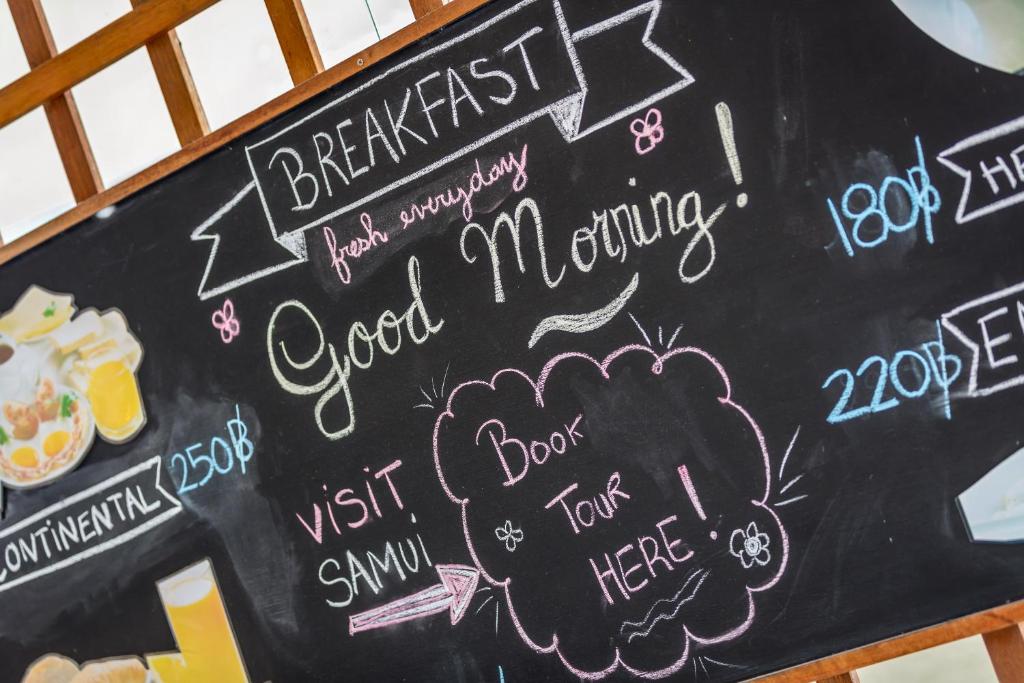 BREAKFAST
fresh everyday
Good Morning!
180฿
HE
220฿
E
250฿
CONTINENTAL
VISIT
SAMUI
BOOK
TOUR
HERE!